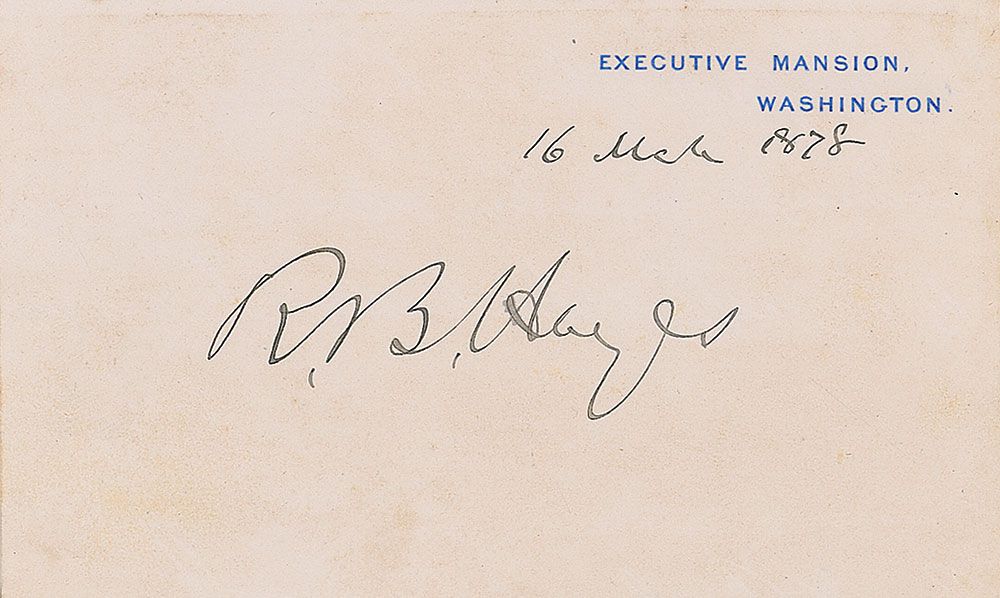 EXECUTIVE MANSION,
WASHINGTON.
16 Mch 1878
R. B. Hayes